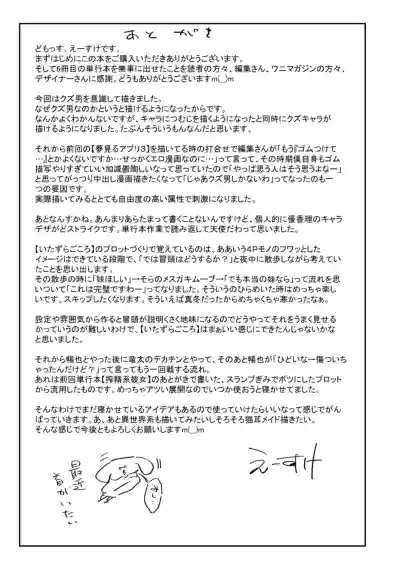 あとがき
どもっす。えーすけです。
まずはじめにこの本をご購入いただきありがとうございます。
そして6冊目の単行本を無事に出せたことを読者の方々、編集さん、ワニマガジンの方々、
デザイナーさんに感謝。どうもありがとうございますm(__)m
今回はクズ男を意識して描きました。
なぜクズ男なのかというと描けるようになったからです。
なんかよくわかんないですが、キャラにつむじを描くようになったと同時にクズキャラが
描けるようになりました。たぶんそういうもんなんだと思います。
それから前回の【夢見るアプリ3】を描いてる時の打合せで編集さんが「もう『ゴムつけて
…』とかよくないですか…せっかくエロ漫画なのに…」って言って、その時期僕自身もゴム
描写やりすぎていい加減鬱陶しいなって思っていたので「やっぱ思う人はそう思うよなー」
と思ってがっつり中出し漫画描きたくなって「じゃあクズ男しかないわ」ってなったのも一
つの要因です。
実際描いてみるととても自由度の高い属性で刺激になりました。
あとなんすかね。あんまりあらたまって書くことないんですけど、個人的に優香理のキャラ
デザがどストライクです。単行本作業で読み返して天使だわって思いました。
【いたずらごころ】のプロットづくりで覚えているのは、ああいう4Pモノのフワッとした
イメージはできている段階で、「では冒頭はどうするか？」と夜中に散歩しながら考えてい
たことを思い出します。
その散歩の時に「妹ほしい」→そらのメスガキムーブ→「でも本当の妹なら」って流れを思い
ついて「これは完璧ですわー」ってなりました。そういうのひらめいた時はめっちゃ楽し
いです。スキップしたくなります。そういえば真冬だったからめちゃくちゃ寒かったなぁ。
設定や雰囲気から作ると冒頭が説明くさく地味になるのでどうやってそれをうまく見せる
かっていうのが難しいわけで、【いたずらごころ】はまぁいい感じにできたんじゃないかな
と思いました。
それから暢也とやった後に竜太のデカチンとやって、そのあと暢也が「ひどいなー傷ついち
ゃったんだけど？」って言ってもう一回戦する流れ。
あれは前回単行本【搾精系彼女】のあとがきで書いた、スランプぎみでボツにしたプロット
から流用したものです。めっちゃアツい展開なのでいつか使おうと寝かせてました。
そんなわけでまだ寝かせているアイデアもあるので使っていけたらいいなって感じでがん
ばっていきます。あ、あと異世界系も描いてみたいしそろそろ猫耳メイド描きたい。
そんな感じで今後ともよろしくお願いしますm(__)m
えーすけ
最近
首がいたい